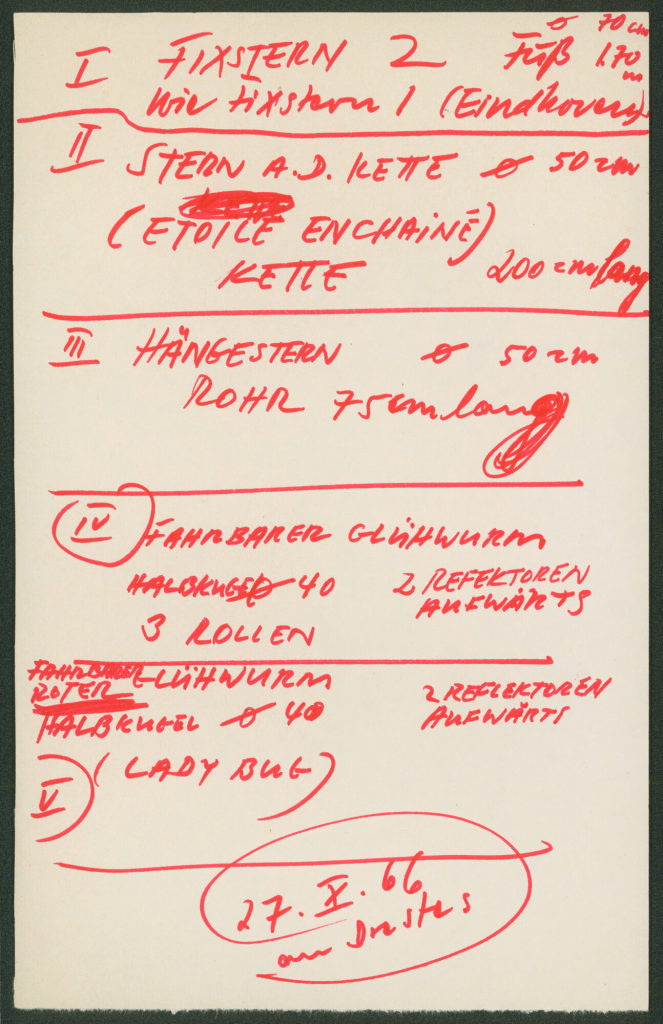 ø 70 cm
I FIXSTERN 2 Fuß 1.70 m
Wie Fixstern 1 (Eindhoven)
II STERN A.D. KETTE ø 50 cm
(ETOILE ENCHAINÉ)
KETTE 200 cm lang
III HÄNGESTERN ø 50 cm
ROHR 75 cm lang
IV FAHRBARER GLÜHWURM
HALBKUGEL ø 40 2 REFEKTOREN
AUFWÄRTS
3 ROLLEN
FAHRBARER
ROTER GLÜHWURM 2 REFLEKTOREN
HALBKUGEL ø 40 AUFWÄRTS
V (LADY BUG)
27. X. 66
an